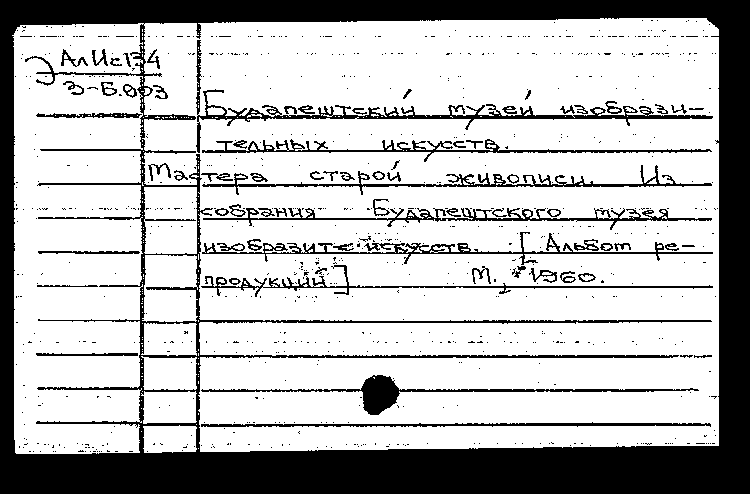 АлИс134
З-Б.003
Будапештский музей изобрази-
тельных искусств.
Мастера старой живописи. Из
собрания Будапештского музея
изобразит-х искусств. [Альбом ре-
продукций] М., 1960.